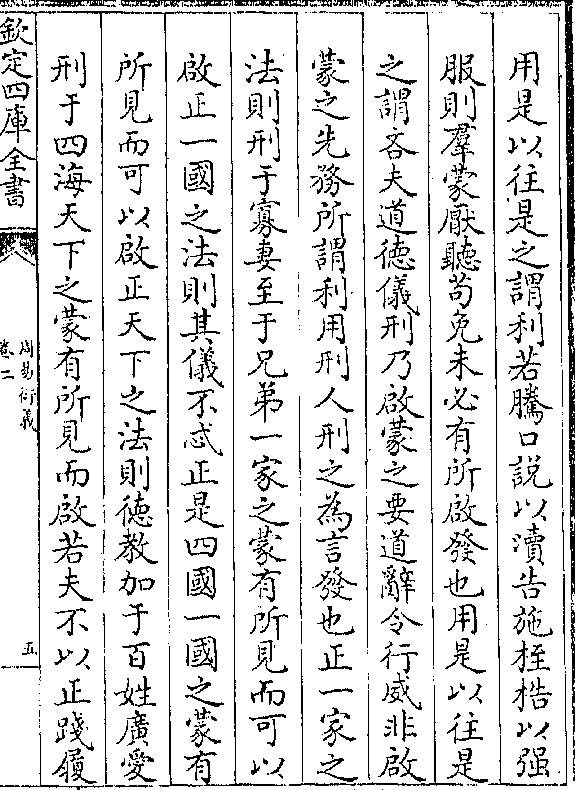 用是以往是之謂利若騰口説以瀆告施桎梏以强
服則羣蒙厭聽苟免未必有所啟發也用是以往是
之謂吝夫道德儀刑乃啟蒙之要道辭令行威非啟
蒙之先務所謂利用刑人刑之為言發也正一家之
法則刑于寡妻至于兄弟一家之蒙有所見而可以
啟正一國之法則其儀不忒正是四國一國之蒙有
所見而可以啟正天下之法則德教加于百姓廣愛
刑于四海天下之蒙有所見而啟若夫不以正踐履
欽定四庫全書
周易衍義
卷二
五